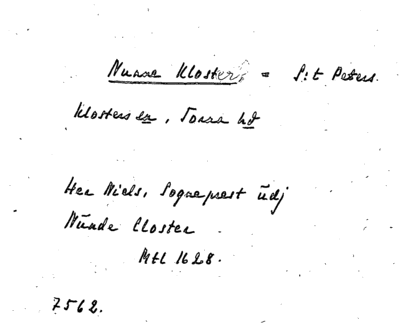 Nunne Kloster, = S:t Peters.
Klosters sn, Torna hd
Her Niels, Sogneprest udj
Nünde Closter
Mtl 1628.
7562.